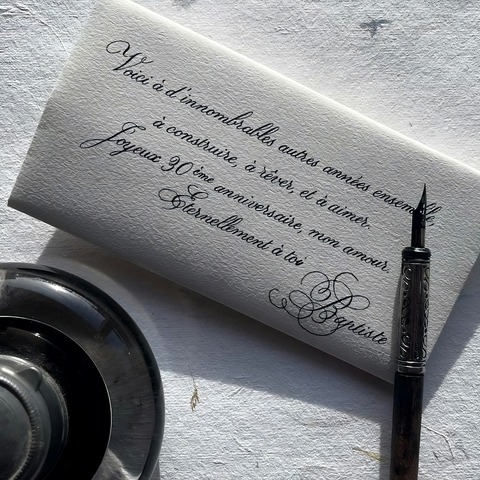 Voici à d'innombrables autres années ensemble
à construire, à rêver, et à aimer.
Joyeux 30ème anniversaire, mon amour.
Eternellement à toi
Baptiste